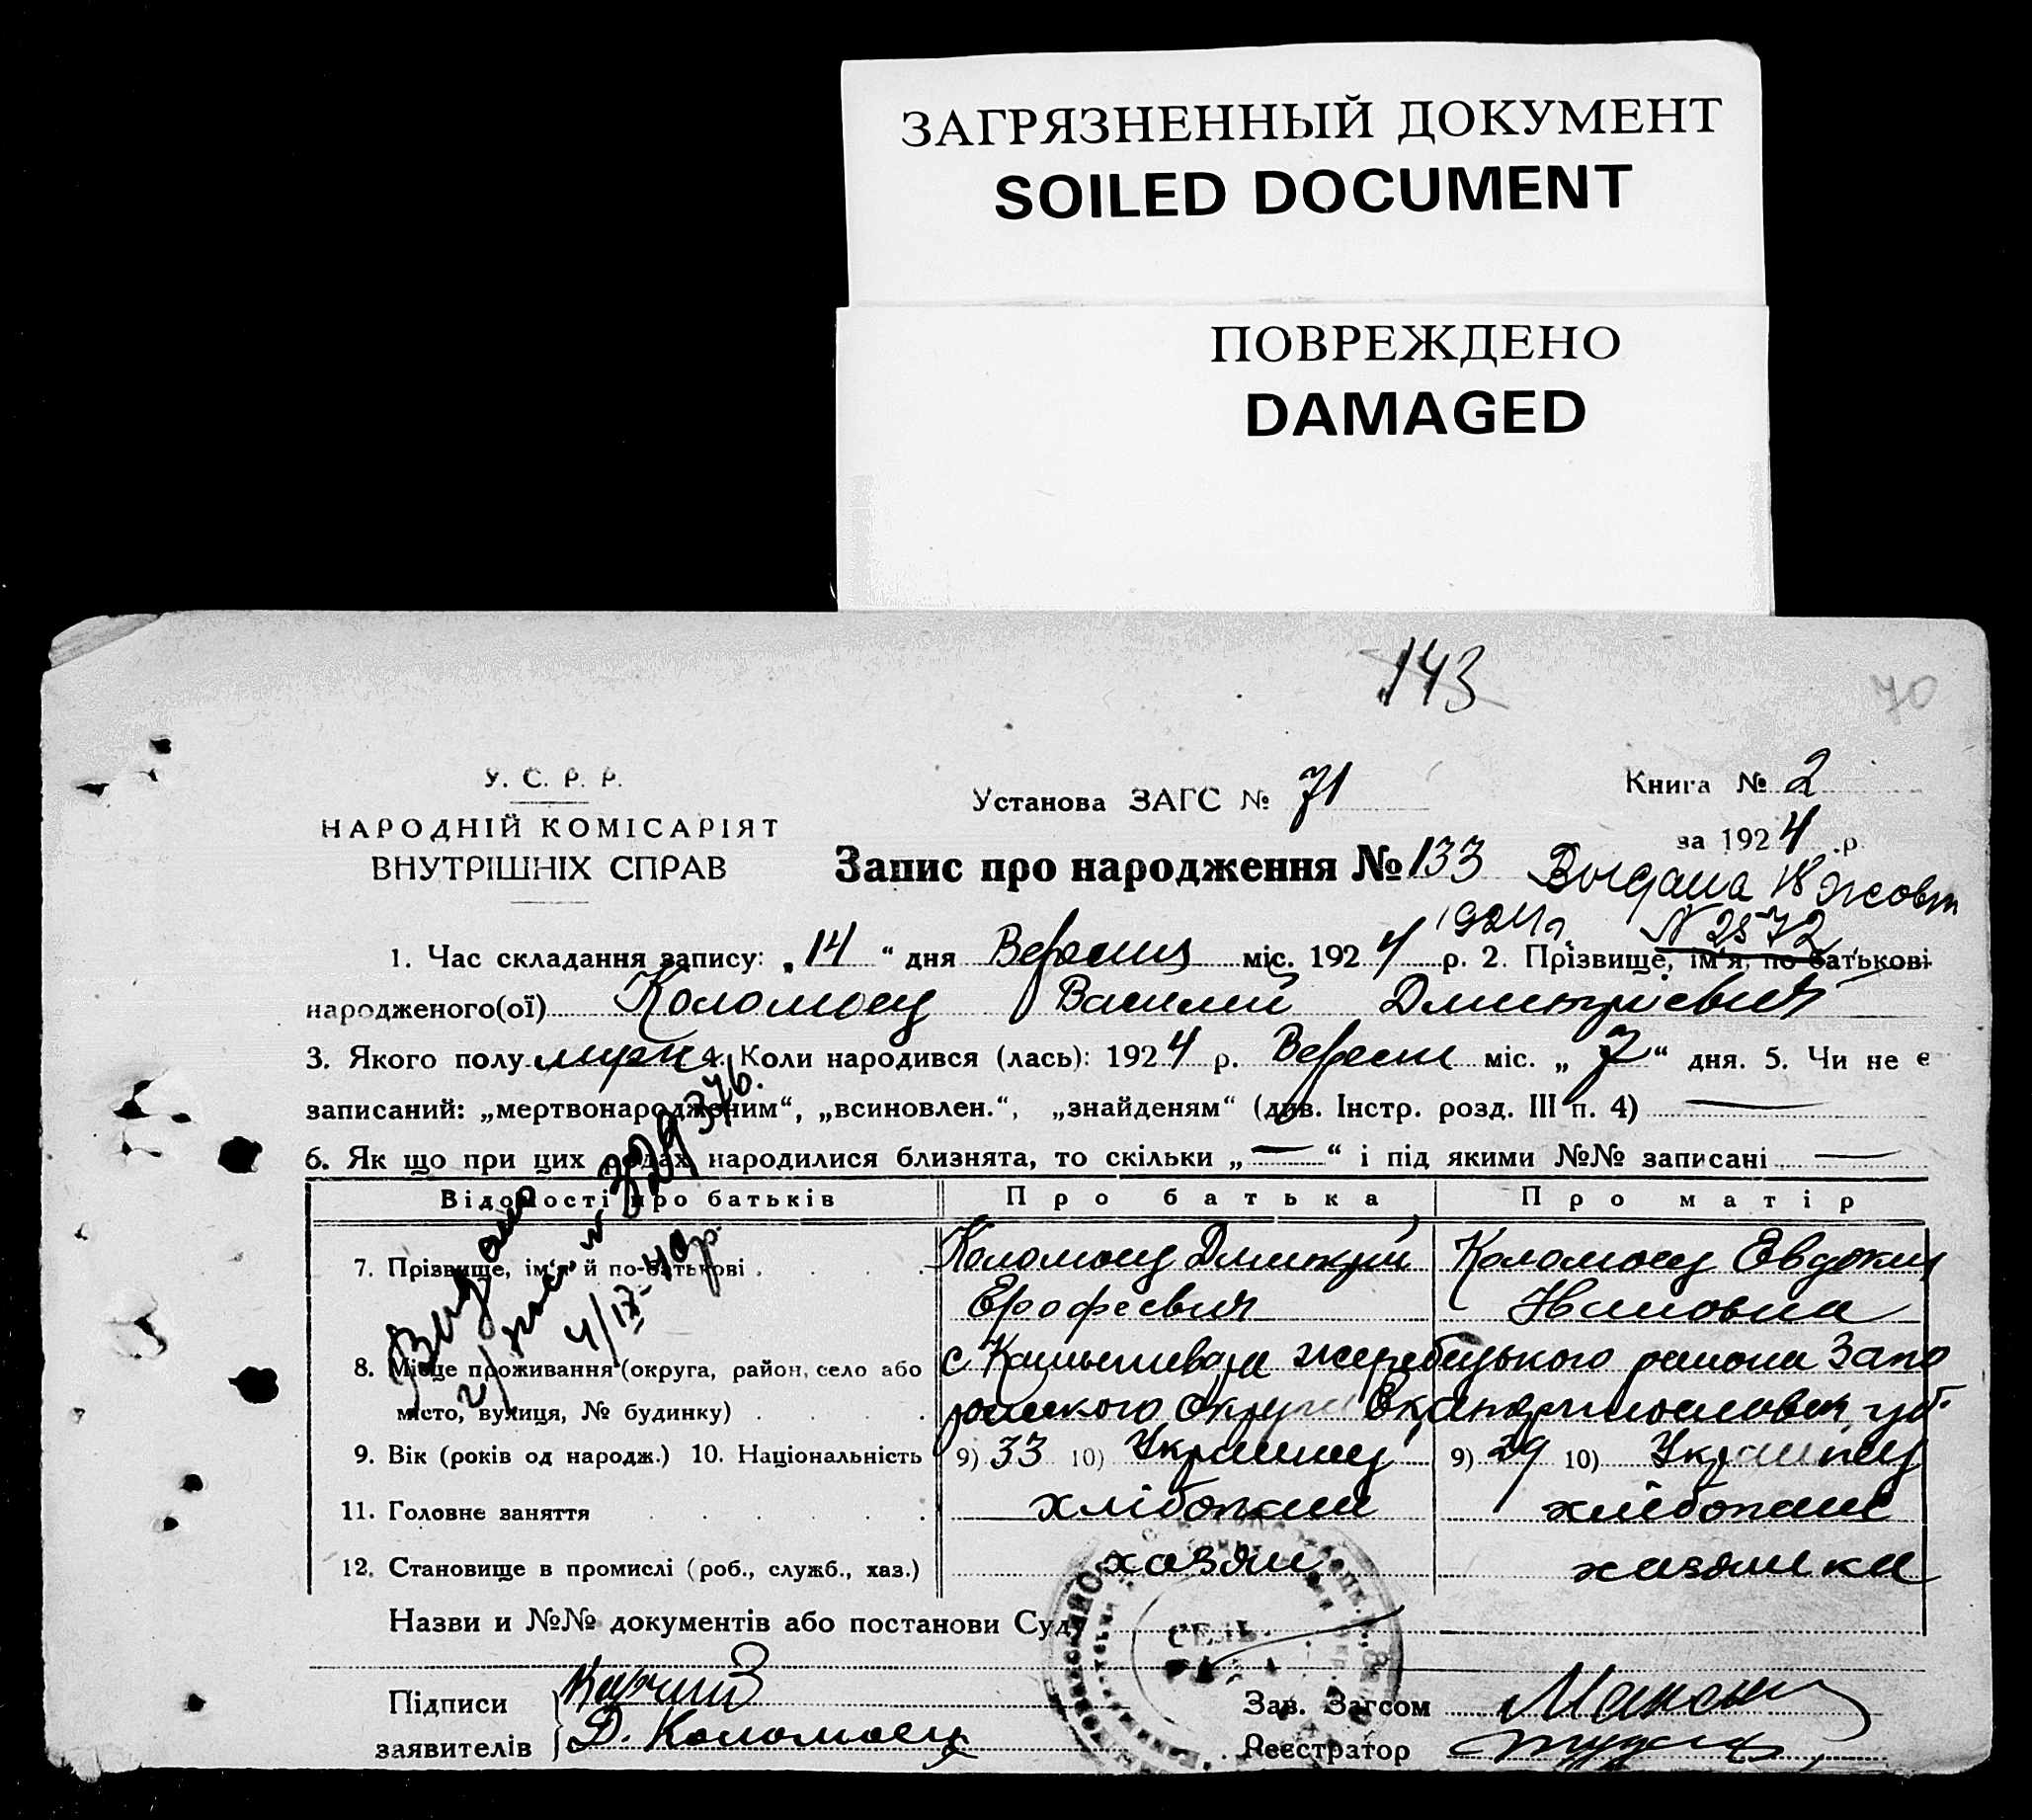 ЗАГРЯЗНЕННЫЙ ДОКУМЕНТ
SOILED DOCUMENT
ПОВРЕЖДЕНО
DAMAGED
143
70
У. С. Р. Р.
НАРОДНІЙ КОМІСАРІЯТ
ВНУТРІШНІХ СПРАВ
Установа ЗАГС № 71
Книга № 2
за 1924 р.
Запис про народження № 133
Выдана 18 жовт
1924 г. N 2872
1. Час складання запису: „14“ дня Вересня міс. 1924 р. 2. Прізвище, ім'я, по батькові
народженого(ої) Коломоец Василий Дмитриевич
3. Якого полу мужч 4. Коли народився (лась): 1924 р. Вересн міс. „7“ дня. 5. Чи не є
записаний: „мертвонародженим“, „всиновлен.“, „знайденям“ (див. Інстр. розд. III п. 4) —
6. Як що при цих родах народилися близнята, то скільки „—“ і під якими №№ записані —
Відомості про батьків Про батька Про матір
7. Прізвище, ім'я й по-батькові . . . . Коломоец Дмитрий Коломоец Евдокия
Ерофеевич Ивановна
8. Місце проживання (округа, район, село або с Камышеваха жеребецького района Запо
місто, вулиця, № будинку) . . . . рожского округа Екатеринославск губ.
9. Вік (років од народж.) 10. Національність 9) 33 10) Украинец 9) 29 10) Украинец
11. Головне заняття . . . . . . хлібопаш хлібопаш
12. Становище в промислі (роб., служб., хаз.) хазяин хазяика
Назви и №№ документів або постанови Суду
Підписи
заявителів Д. Коломоец
Зав. Загсом
Реєстратор
4/IX-40р.